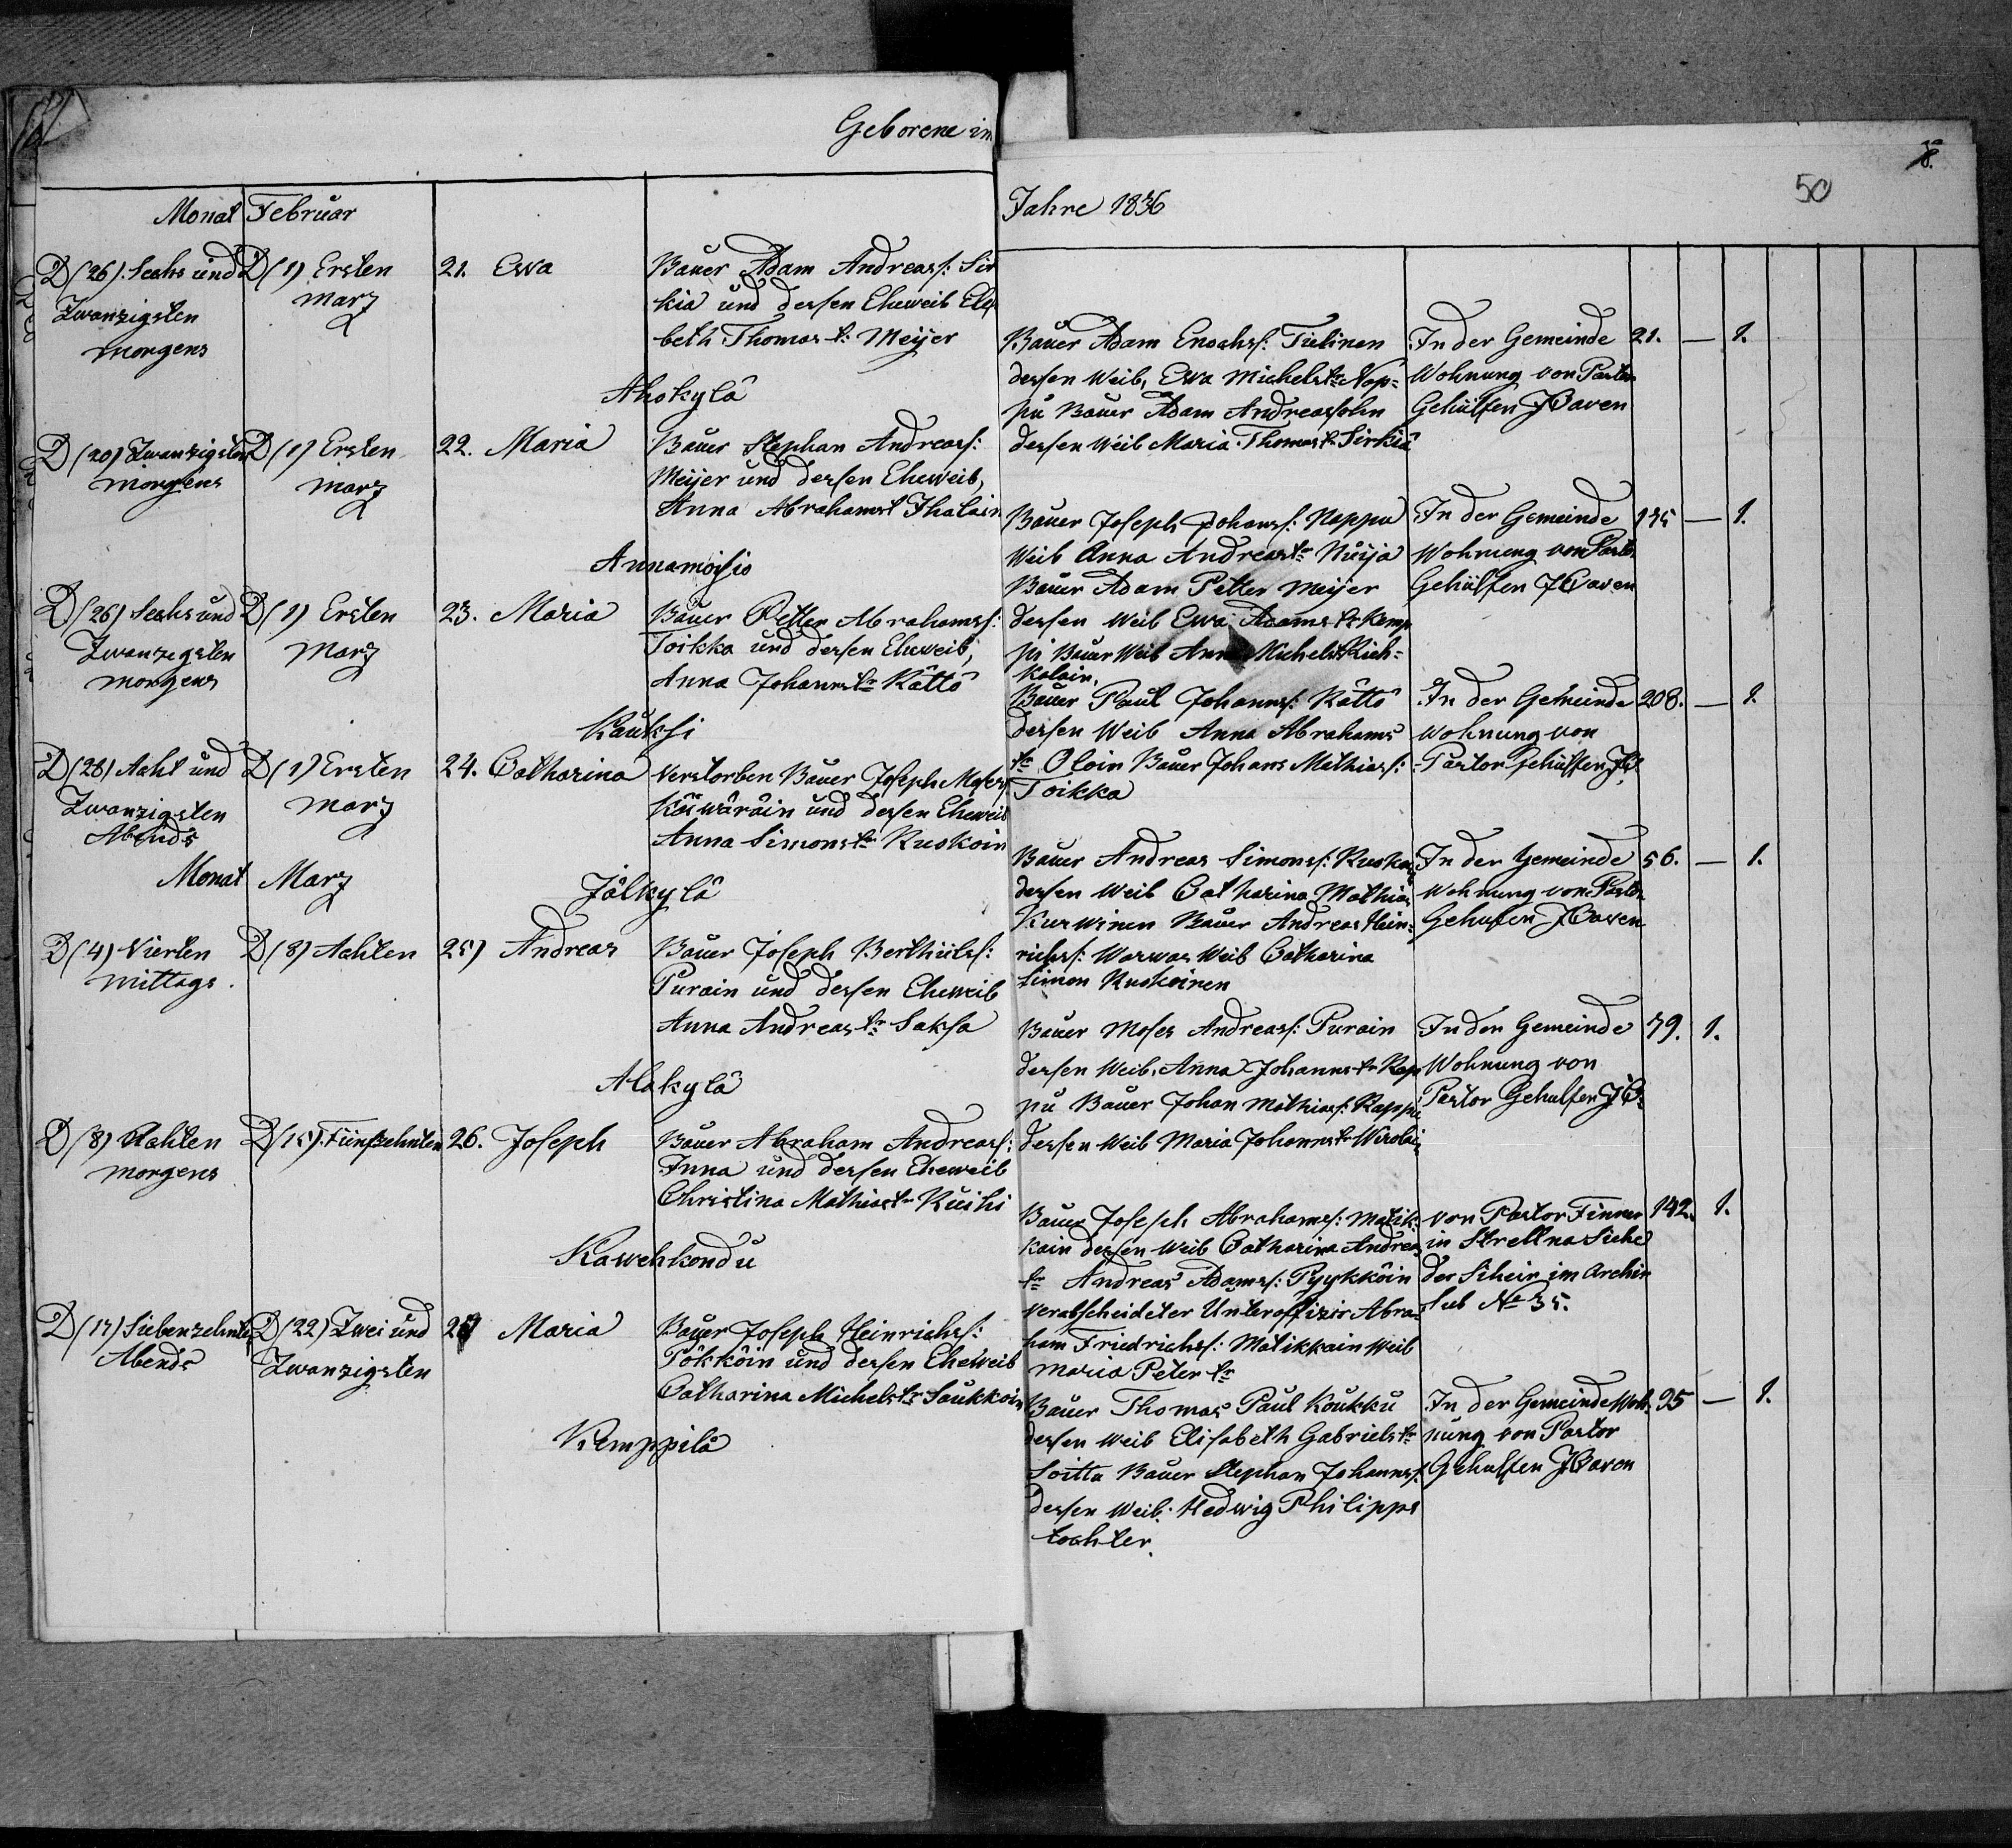 Geborene im
Jahre 1836
50
Monat Februar
D (26). Sechs und
Zwanzigsten
morgens
D (1) Ersten
marz
21. Ewa
Bauer Adam Andreass: Sir
kia und dessen Eheweib Elis
beth Thomas tr: Meijer
Ahokylä
Bauer Adam Enochs: Tielinen
dessen Weib, Ewa Michels tr Nop=
pu Bauer Adam Andreassohn
dessen Weib Maria Thomas tr Sirkiä
In der Gemeinde
Wohnung von Pastor
Gehülfen JCaven
21. — 1.
D (20) Zwanzigsten
morgens
D (1) Ersten
marz
22. Maria
Bauer Stephan Andreass:
Meijer und dessen Eheweib,
Anna Abrahamst Ihalain
Annamoisio
Bauer Joseph Johanss: Nappu
Weib Anna Andreas tr Nuija
Bauer Adam Petter Meijer
dessen Weib Ewa Adams tr Kemp
pi Bauer Weib Anna Michels tr Kich=
kalain.
In der Gemeinde
Wohnung von Pastor
Gehülfen JCaven
135 — 1.
D (26) Sechs und
Zwanzegsten
morgens
D (1) Ersten
Marz
23. Maria
Bauer Petter Abrahamss:
Toikka und dessen Eheweib,
Anna Johanns tr Kättö
Kauksi
Bauer Paul Johanns: Kättö
dessen Weib Anna Abrahams
tr Oloin Bauer Johans Mathiass:
Toikka
In der Gemeinde
Wohnung von
Pastor Gehülfen JC
208. — 1.
D (28) Acht und
Zwanzigsten
Abends
D (1) Ersten
Marz
24. Catharina
Verstorben Bauer Joseph Moses
Käiwäräin und dessen Eheweib
Anna Simons tr Ruokoin
Jälkylä
Bauer Andreas Simonss: Ruokoi
dessen Weib Catharina Mathias
Kurwinen Bauer Andreas Hein=
richs: Warwas Weib Catharina
Simon Ruokoinen
In der Gemeinde
Wohnung von Pastor
Gehulfen JCaven
56. — 1.
Monat Marz
D (4) Vierten
mittags.
D (8) Achten
25) Andreas
Bauer Joseph Berthuels:
Purain und dessen Eheweib
Anna Andreas tr Saksa
Alakylä
Bauer Moses Andreass: Purain
dessen Weib, Anna Johanns tr Rap
pu Bauer Johan Mathiass: Rappu
dessen Weib Maria Johanns tr Wirolai
In der Gemeinde
Wohnung von
Pastor Gehulfen JC.
79. 1.
D (8) Achten
morgens
D (15). Fünfzehnten
26. Joseph
Bauer Abraham Andreass:
Inna und dessen Eheweib
Christina Mathias tr Kuihi
Kawehkondu
Bauer Joseph Abrahamss: Matik=
kain dessen Weib Catharina Andreas
tr Andreas Adams: Pyykköin
verabscheideter Unteroffizir Abra=
ham Friedrichss: Matikkain Weib
Maria Peter tr
von Pastor Finner
in Strellna Siehe
der Schein im Archiv
sub No 35.
142. 1.
D (17) Siebenzehnten
Abends
D (22) Zwei und
Zwanzigsten
27 Maria
Bauer Joseph Heinrichs:
Pökköin und dessen Eheweib
Catharina Michels tr Saukkoin
Kemppilä
Bauer Thomas Paul Koukku
dessen Weib Elisabeth Gabriels tr
Soittu Bauer Stephan Johanns:
dessen Weib. Hedwig Philipps
tochter.
In der Gemeinde Woh=
nung von Pastor
Gehulfen JCaven
95 — 1.